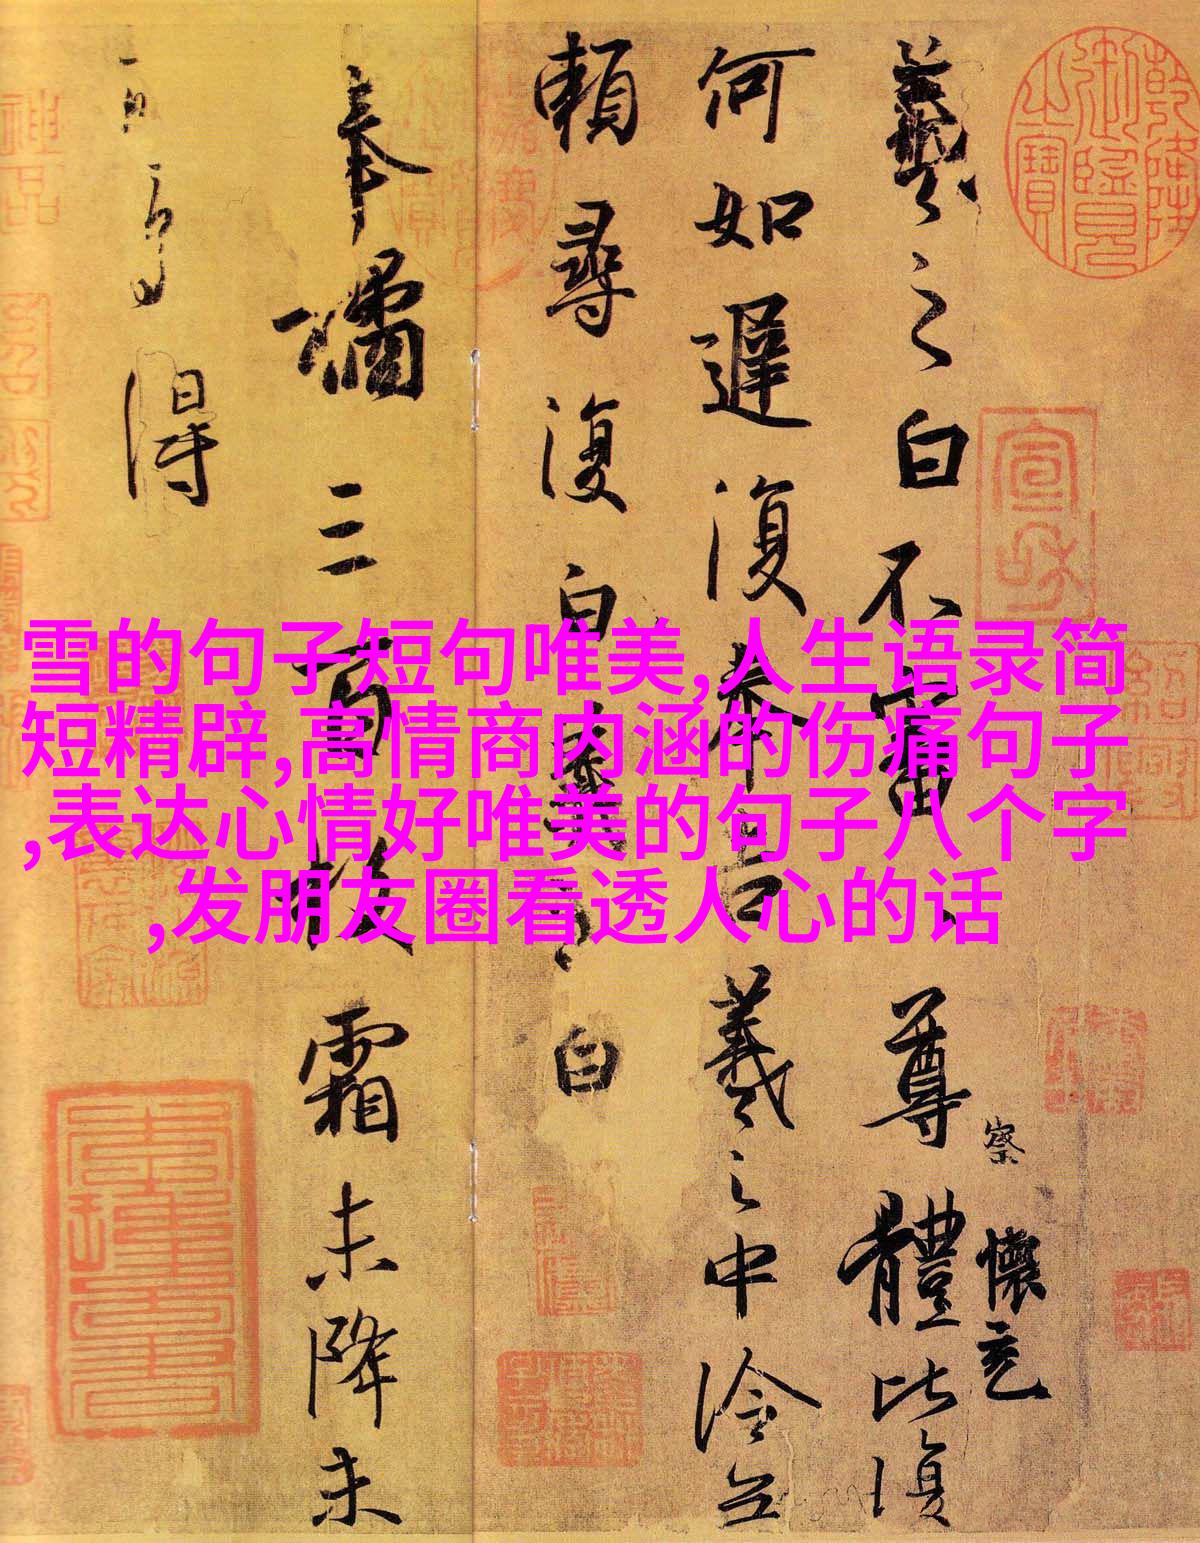 雪的句子短句唯美,人生语录简
短精辟,高情商内涵的伤痛句子
,表达心情好唯美的句子八个字
,发朋友圈看透人心的话
乾隆御覽之寶
宣和
察 懷充
羲之白不審尊體比復
何如遲復奉告羲之中冷無
賴尋復白羲之白
奉橘三百枚霜未降未
可多得
神品